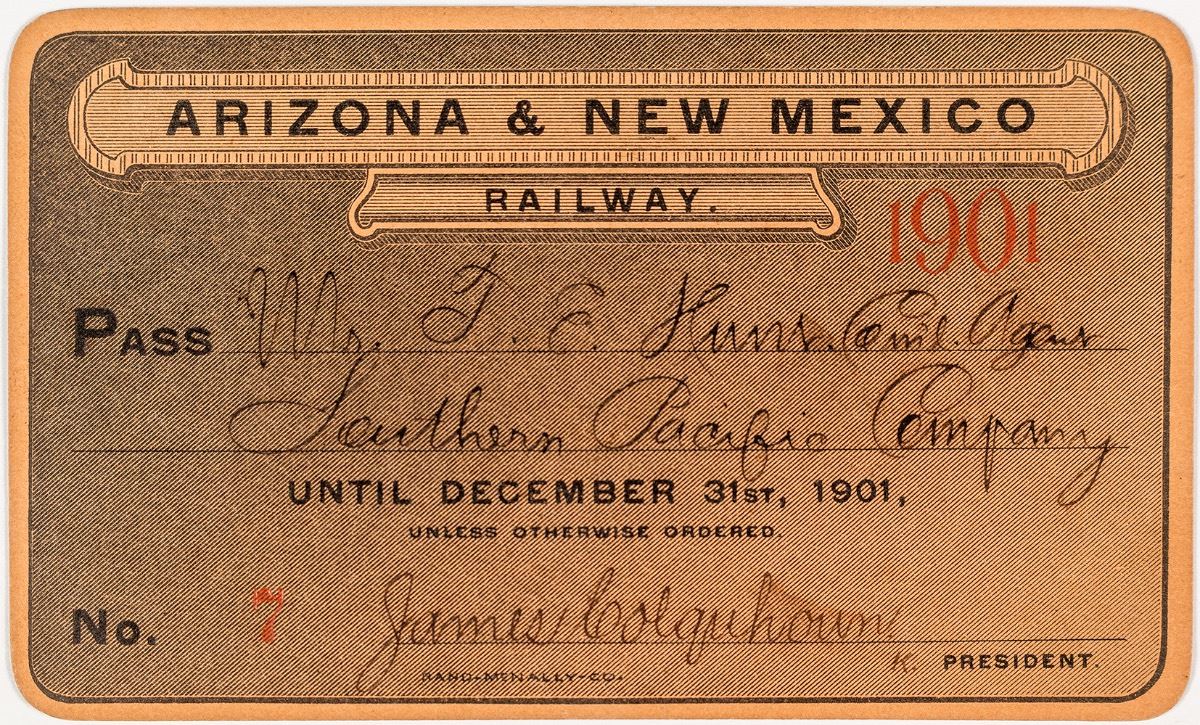 ARIZONA & NEW MEXICO
RAILWAY.
1901
PASS Mr. T. E. Hunt. Coml. Agent
Southern Pacific Company
UNTIL DECEMBER 31ST, 1901,
UNLESS OTHERWISE ORDERED.
No. 7 James Colquhoun
K. PRESIDENT.
RAND-McNALLY-CO.